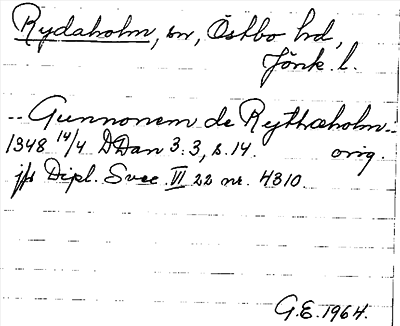 Rydaholm, sn, Östbo hd,
Jönk. l.
-- Gunnonem de Rythæholm --
1348 14/4 DDan 3.3, s. 14. orig.
jfr Dipl. Svec. VI 22 nr. 4310.
G.E. 1964.